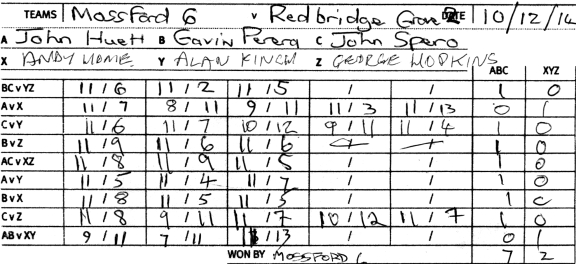 TEAMS Mossford 6 v Redbridge Grove DATE 10/12/14
A John Huett B Gavin Perera C John Spero
X ANDY HOME Y ALAN KINCH Z GEORGE HOPKINS
ABC XYZ
BCvYZ 11/6 11/2 11/5 / / 1 0
AvX 11/7 8/11 9/11 11/3 11/13 0 1
CvY 11/6 11/7 10/12 9/11 11/4 1 0
BvZ 11/9 11/6 11/6 / / 1 0
ACvXZ 11/8 11/9 11/5 / / 1 0
AvY 11/5 11/4 11/7 / / 1 0
BvX 11/8 11/5 11/5 / / 1 0
CvZ 11/8 9/11 11/7 10/12 11/7 1 0
ABvXY 9/11 7/11 /13 / / 0 1
WON BY MOSSFORD 6 7 2